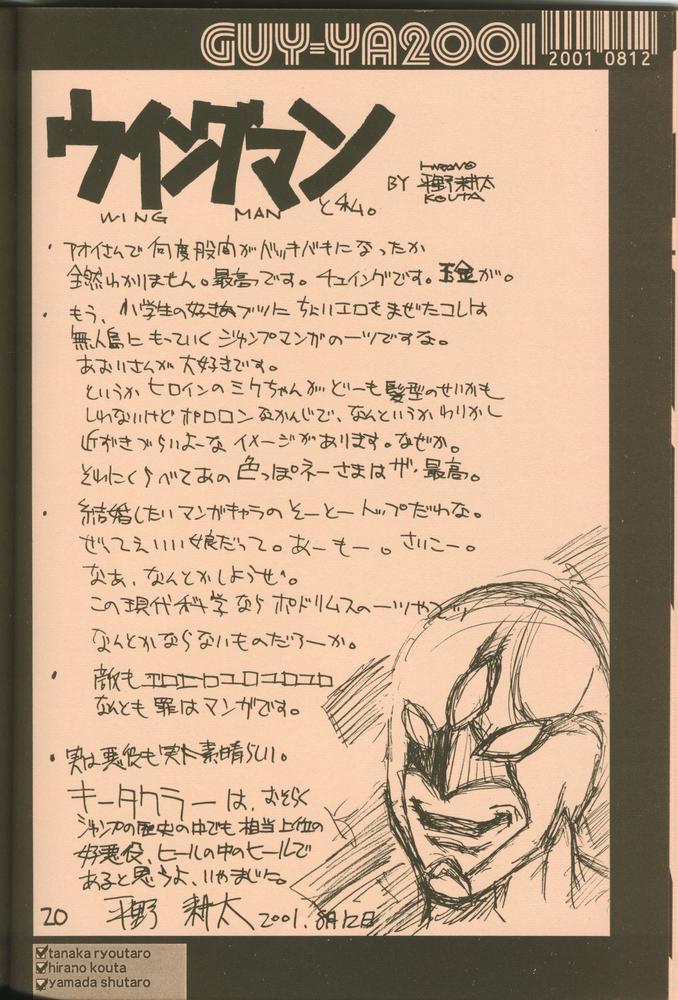 GUY-YA2001
2001 0812
ウイングマン
WING MAN
と私。
BY
HIRANO
平野耕太
KOUTA
・アオイさんで何度股間がベッキバキになったか
全然わかりません。最高っです。チュイングです。玉金が。
・もう、小学生の好きなブツにちょいエロをまぜたコレは
無人島にもっていくジャンプマンガの一ツですな。
あおいさんが大好きです。
というかヒロインのミクちゃんがどーも髪型のせいかも
しれないけどポロロンなかんじで、なんというかわりかし
近づきづらいよーなイメージがあります。なぜか。
それにくらべてあの色っぽネーさまはザ・最高。
・結婚したいマンガキャラのそーとートップだわな。
ぜってえいい娘だって。あーもー。さいこー。
なあ、なんとかしようぜ。
この現代科学ならポドリムスの一ツや二ツ
なんとかならないものだろーか。
・敵もエロエロユロユロユロ
なんとも罪はマンガです。
・実は悪役も実に素晴らしい。
キータクラーは、おそらく
ジャンプの歴史の中でも相当上位の
好悪役、ヒールの中のヒールで
あると思うよ、いやまじに。
20 平野 耕太 2001.8月12日
tanaka ryoutaro
hirano kouta
yamada shutaro